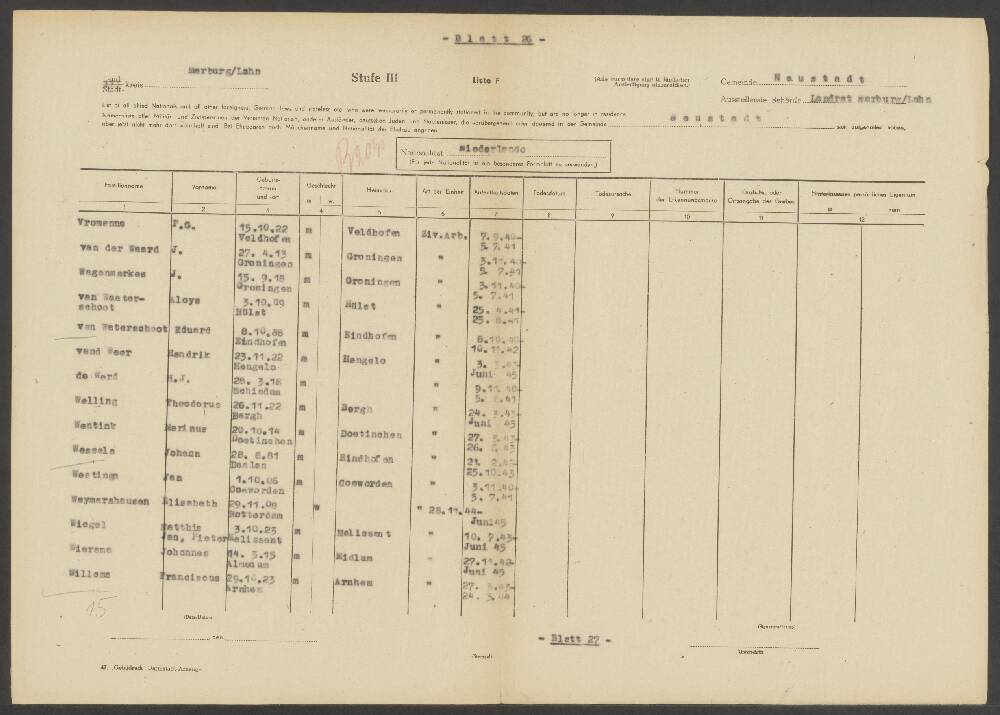 - Blatt 26 -
Marburg/Lahn
Land
Stadt- kreis
Stufe III
Liste F
(Alle Formulare sind in fünffacher
Ausfertigung einzureichen)
Gemeinde Neustadt
Ausstellende Behörde Landrat Marburg/Lahn
List of all Allied Nationals and all other foreigners, German Jews and stateless etc. who were temporarily or permanently stationed in the community, but are no longer in residence.
Namensliste aller Militär- und Zivilpersonen der Vereinten Nationen, anderer Ausländer, deutscher Juden und Staatenloser, die vorübergehend oder dauernd in der Gemeinde Neustadt sich aufgehalten haben,
aber jetzt nicht mehr dort wohnhaft sind. Bei Ehepaaren auch Mädchenname und Nationalität der Ehefrau angeben.
Nationalität Niederlande
(Für jede Nationalität ist ein besonderes Formblatt zu verwenden.)
Familienname Vorname Geburts-datum und -ort Geschlecht m w. Heimatort Art der Einheit Aufenthaltsdaten Todesdatum Todesursache Nummer der Erkennungsmarke Grab-Nr. oder Ortsangabe des Grabes Hinterlassenes persönliches Eigentum
1 2 3 4 5 6 7 8 9 10 11 12
Vromanns F.G. 15.10.22 m Veldhofen Ziv.Arb. 7.9.40-
Veldhofen 5.7.41
van der Weard J. 27. 4.13 m Groningen " 3.11.40-
Groningen 5. 7.41
Wagenmerkes J. 15. 9.18 m Groningen " 3.11.40-
Groningen 5. 7.41
van Waater- Aloys 3.10.09 m Hülst " 25. 4.41-
schoot Hülst 25. 6.41
van Waterschoot Eduard 8.10.88 m Eindhofen " 8.10.40-
Eindhofen 10.11.42
vand Weer Hendrik 23.11.22 m Hengelo " 3.
Hengelo Juni 45
de Werd H.J. 28. 3.18 m " 9.11.40-
Schiedam 5. 6.41
Welling Theodorus 26.11.22 m Bergh " 24. 3.43-
Bergh Juni 45
Wentink Marinus 20.10.14 m Doetinchen " 27.
Doetinchen 26.
Wessels Johann 28. 8.81 m Eindhofen " 21. 2.
25.10.43
Westingn Jan 1.10.06 m Coeworden " 3.11.40-
Coeworden 5. 7.41
Weymarshausen Elisabeth 29.11.09 w " 28.11.44-
Rotterdam Juni45
Wiegel Matthis 3.10.23 m Melissant " 10. 7.43-
Jan, Pieter Melissant Juni 45
Wiersma Johannes 14. 3.15 m Midlum " 27.11.42-
Juni 45
Willems Franciscus 29.10.23 m Arnhem " 27.
Arnhem 24. 3.44
15
(Date/Datum)
den
(Stempel)
- Blatt 27 -
(Signature/Name)
(Unterschrift)